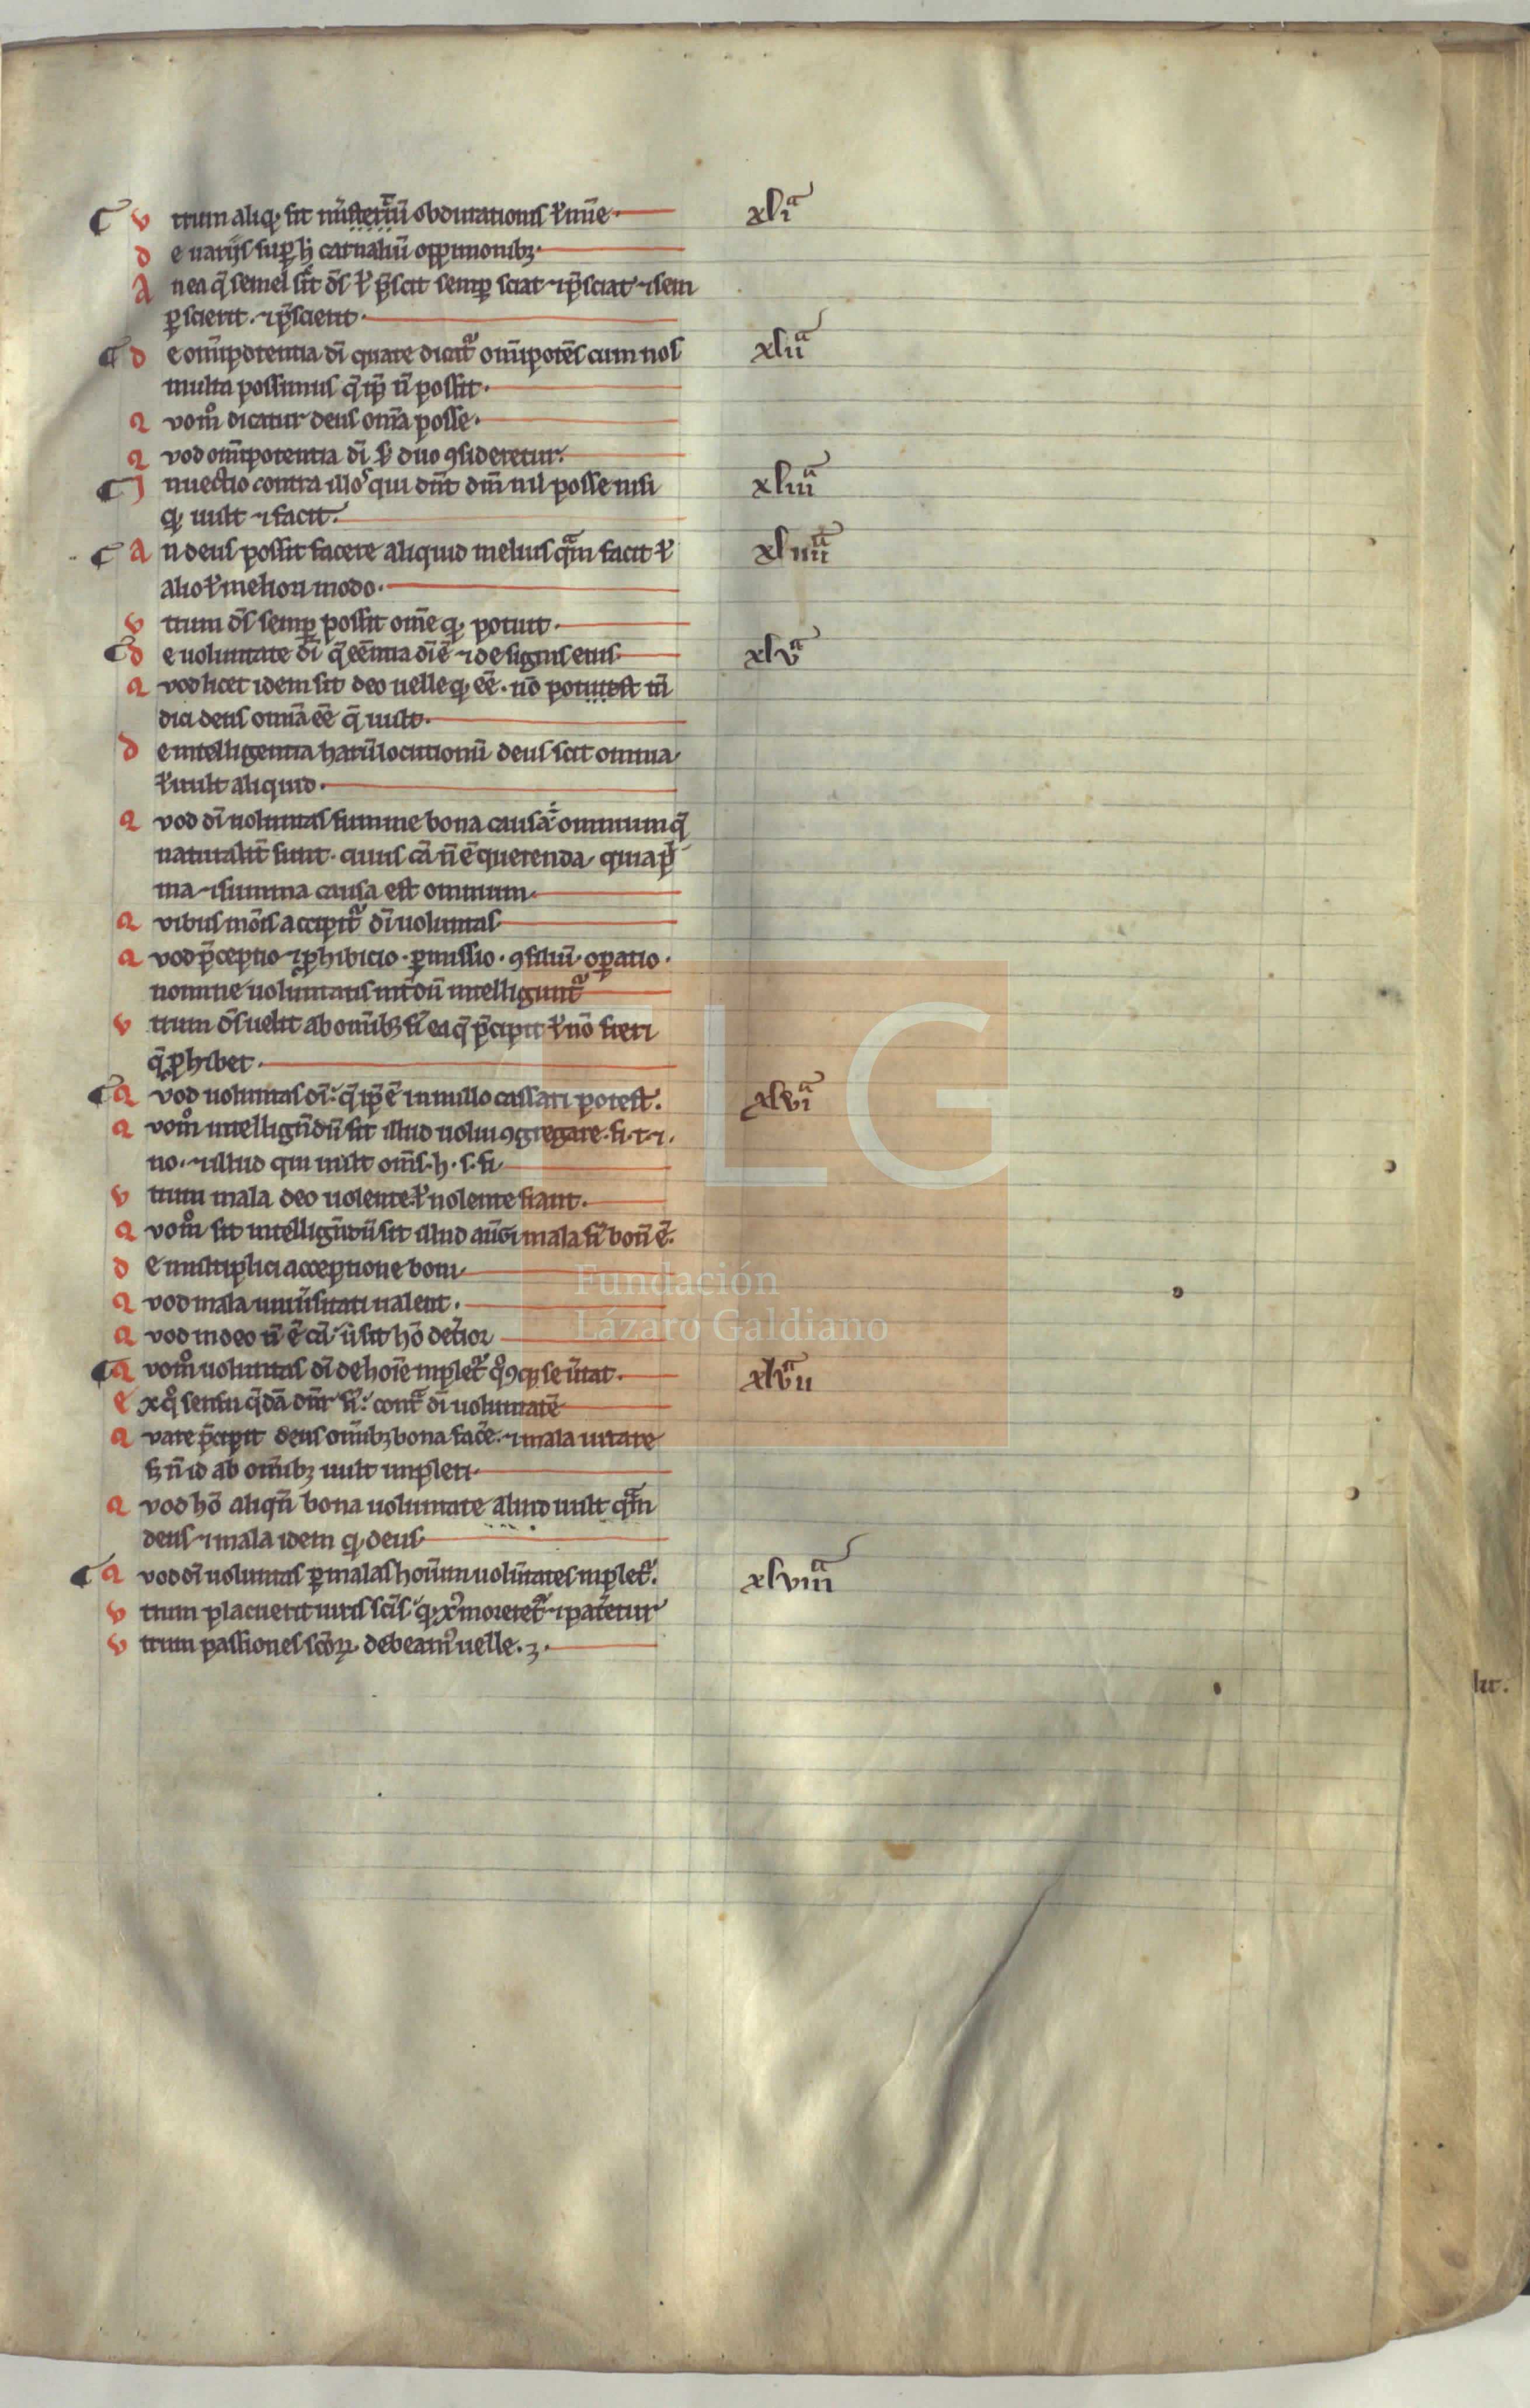 vtrum aliq̨ sit mist̃eriũ obdurationis ł mise xliᵃ
de uarijs sup h̃ carnaliũ oppinionibꝫ
An ea q̃ semel scit ds̃ ł p̃scit semꝑ sciat ⁊ p̃sciat ⁊ sem
ꝑ scierit ⁊ p̃scierit
de om̃ipotentia dĩ quare dicit᷑ om̃ipotẽs cum nos xliiᵃ
multa possimus q̃ ip̃e ñ possit
Quom̊ dicatur deus om̃a posse
Quod om̃ipotentia dĩ duo ꝯsideretur
Inuectio contra illos qui dñt dm̃ nil posse nisi xliiiᵃ
q̨ uult ⁊ facit
An deus possit facere aliquid melius q̃m facit ł xliiiiᵃ
alio ł meliori modo
vtrum ds̃ semꝑ possit om̃e q̨ potuit
de uoluntate dĩ q̃ eẽntia dĩ ẽ ⁊ de signis eius xlvᵃ
Quod licet idem sit deo uelle q̨ eẽ nõ potuitest tñ
dici deus omnia eẽ q̃ uult
de intelligentia harũ locutionũ deus scit omnia
ł uult aliquid
Quod dĩ uoluntas summe bona causa omnium q̃
naturalit̃ sunt cuius cã ñ ẽ querenda quia p̃
ma ⁊ summa causa est omnium
Quibus mõis accipit᷑ dĩ uoluntas
Quod p̃ceptio ⁊ ꝓhibicio ꝑmissio ꝯsiliũ oꝑatio
nomine uoluntatis int̃dũ intelligunt᷑
vtrum ds̃ uelit ab om̃ibꝫ fĩ ea q̃ p̃cipit ł nõ fieri
q̃ ꝓhibet
Quod uoluntas dĩ q̃ ip̃e ẽ in nullo cassari potest xlviᵃ
Quom̊ intelligẽdũ sit illud uolui ꝯgregare fi t ⁊
no ⁊ illud qui uult om̃s h s fi
vtrum mala deo uolente ł nolente fiant
Quom̊ sit intelligẽdũ sit illud aug̃ mala fĩ bonũ ẽ
de multiplici acceptione boni
Quod mala uniũsitati ualent
Quod in deo ñ ẽ cã ut sit hõ det̃ior
Quom̊ uoluntas dĩ de hoĩe inplet᷑ q̊cũqꝫ se ũtat xlviiᵃ
Ex q̊ sensu q̃dã dñr fĩ contᷓ dĩ uoluntatẽ
Quare p̃cipit deus om̃ibꝫ bona fac̃e ⁊ mala uitare
sꝫ ñ id ab om̃ibꝫ uult impleri
Quod hõ aliqñ bona uoluntate aliud uult q̃m
deus ⁊ mala idem q̨ deus
Quod dĩ uoluntas ꝑ malas hoĩum uolũtates inplet᷑ xlviiiᵃ
vtrum placuerit uiris scĩs q̨ xp̃c moreret᷑ ⁊ pat̃etur
vtrum passiones scõꝝ debeam᷒ uelle
lit.
FLG
Fundación
Lázaro Galdiano